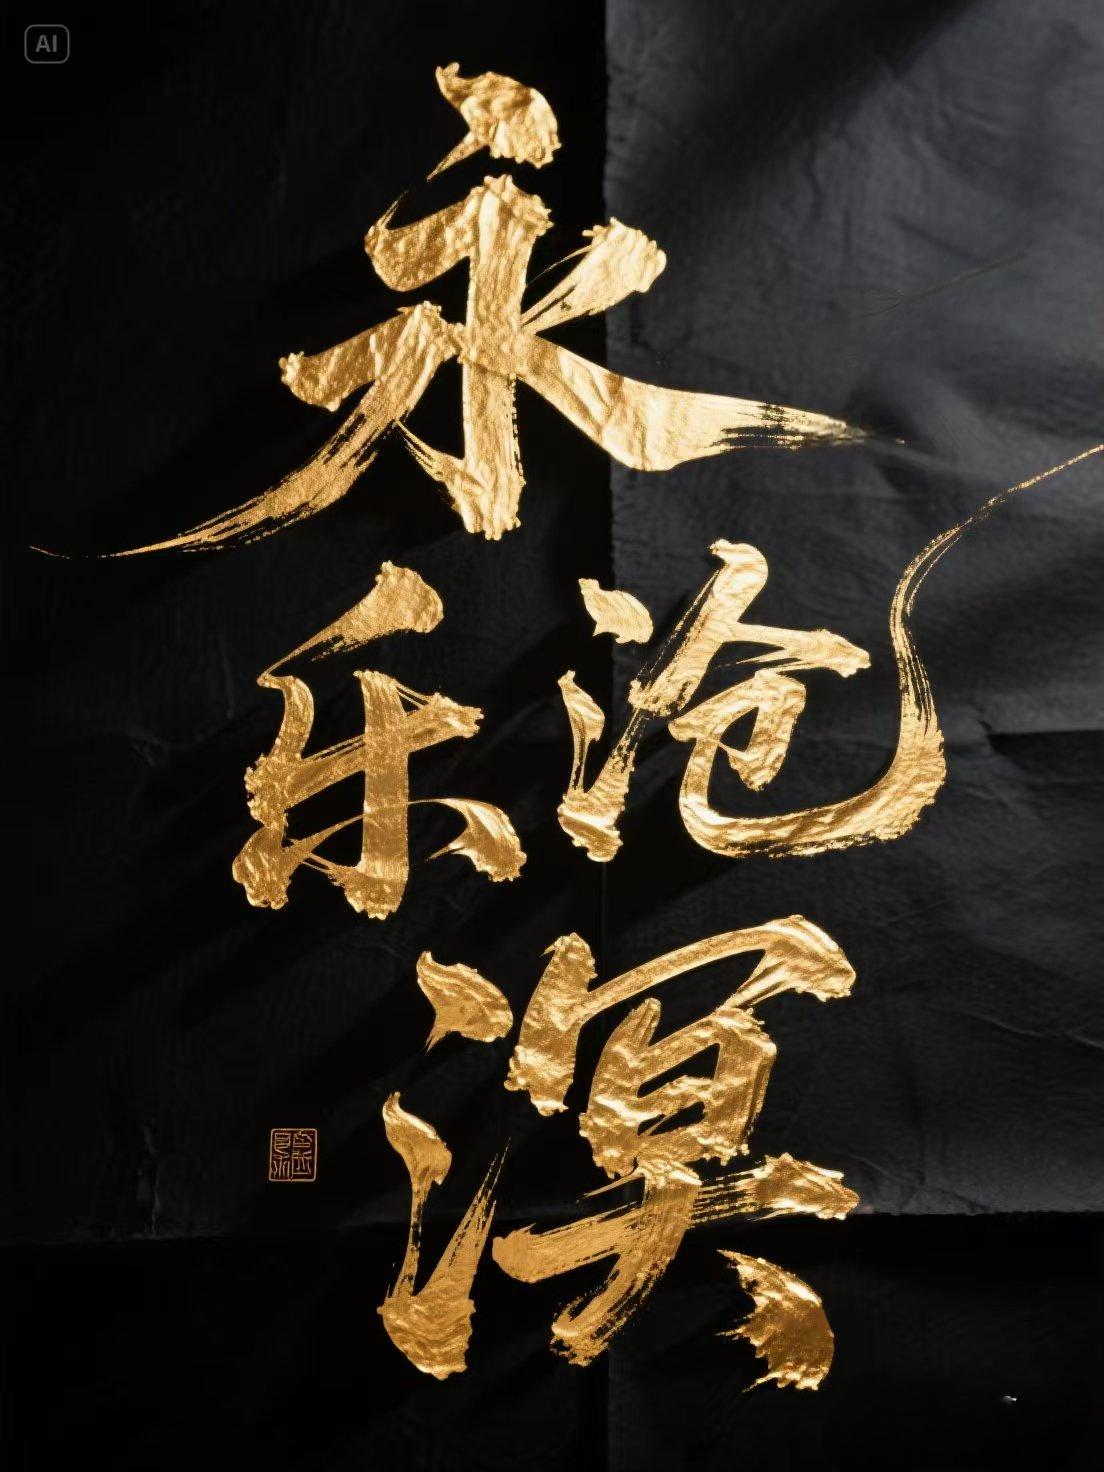 AI
永
乐沧
溟